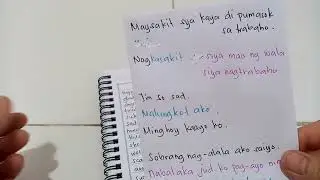 Maysakit sya kaya di pumasok
sa trabaho.
Nagkasakit siya mao ng wala
siya nagtrabaho
I'm so sad.
Nalungkot ako.
Minghoy kaayo ko.
Sobrang nag-alala ako saiyo.
Nabalaka jud ko pag-ayo